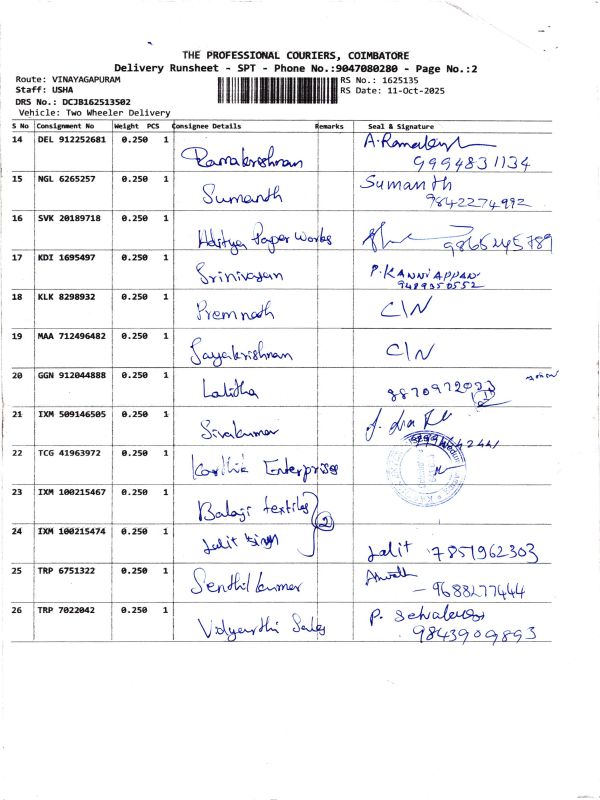 THE PROFESSIONAL COURIERS, COIMBATORE
Delivery Runsheet - SPT - Phone No.:9047080280 - Page No.:2
Route: VINAYAGAPURAM RS No.: 1625135
Staff: USHA RS Date: 11-Oct-2025
DRS No.: DCJB162513502
Vehicle: Two Wheeler Delivery
S No Consignment No Weight PCS Consignee Details Remarks Seal & Signature
14 DEL 912252681 0.250 1 Ramakrishnan 9994831134
15 NGL 6265257 0.250 1 Sumanth Sumanth
9842274992
16 SVK 20189718 0.250 1 Aditya Paper Works 9865245789
17 KDI 1695497 0.250 1 Srinivasan P. KANNIAPPAN
9489350552
18 KLK 8298932 0.250 1 Premnath C/N
19 MAA 712496482 0.250 1 Jayakrishnan C/N
20 GGN 912044888 0.250 1 Lalitha
21 IXM 509146505 0.250 1 Sivakumar
22 TCG 41963972 0.250 1 Karthik Enterprises
23 IXM 100215467 0.250 1 Balaji textiles
2
24 IXM 100215474 0.250 1 Lalit Singh Lalit 7851962303
25 TRP 6751322 0.250 1 Senthil kumar
- 9688277444
26 TRP 7022042 0.250 1 Vidyarthi Sales P.
9843909893